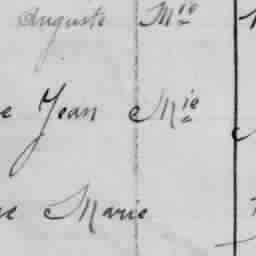 Auguste Mie
e Jean Mie
e Marie